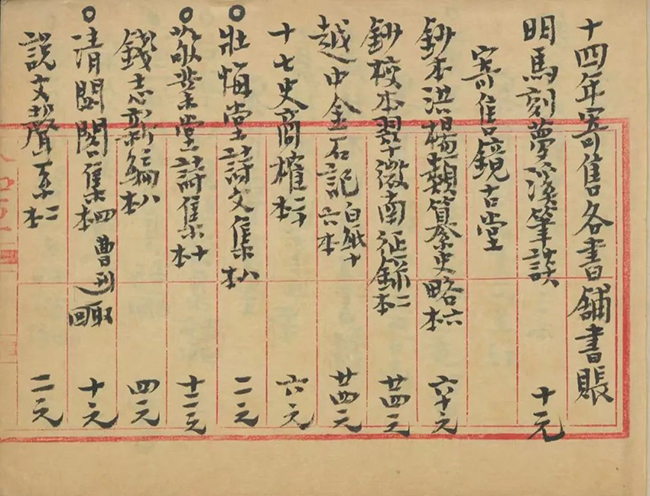 十四年寄售各書舖書賬
明馬刻夢溪筆談 十元
寄售鏡古堂
鈔本洪楊類纂史略 六本 六十元
鈔校本翠微南征錄 二本 廿四元
越中金石記 白紙十六本 廿四元
十七史商榷 六元
壯悔堂詩文集 八本 二元
敬業堂詩集 十本 十二元
錢志新編 八本 四元
清閟閣集 四本 曹刊 取回 十元
說文聲系 二本 二元